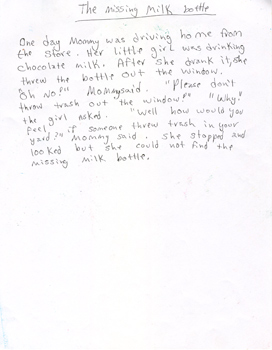 The missing Milk bottle
One day Mommy was driving home from
the store. Her little girl was drinking
chocolate milk. After she drank it, she
threw the bottle out the window.
"Oh No!" Mommy said. "Please don't
throw trash out the window!" "Why."
the girl asked. "Well how would you
feel, if someone threw trash in your
yard?" Mommy said. She stopped and
looked but she could not find the
missing milk bottle.